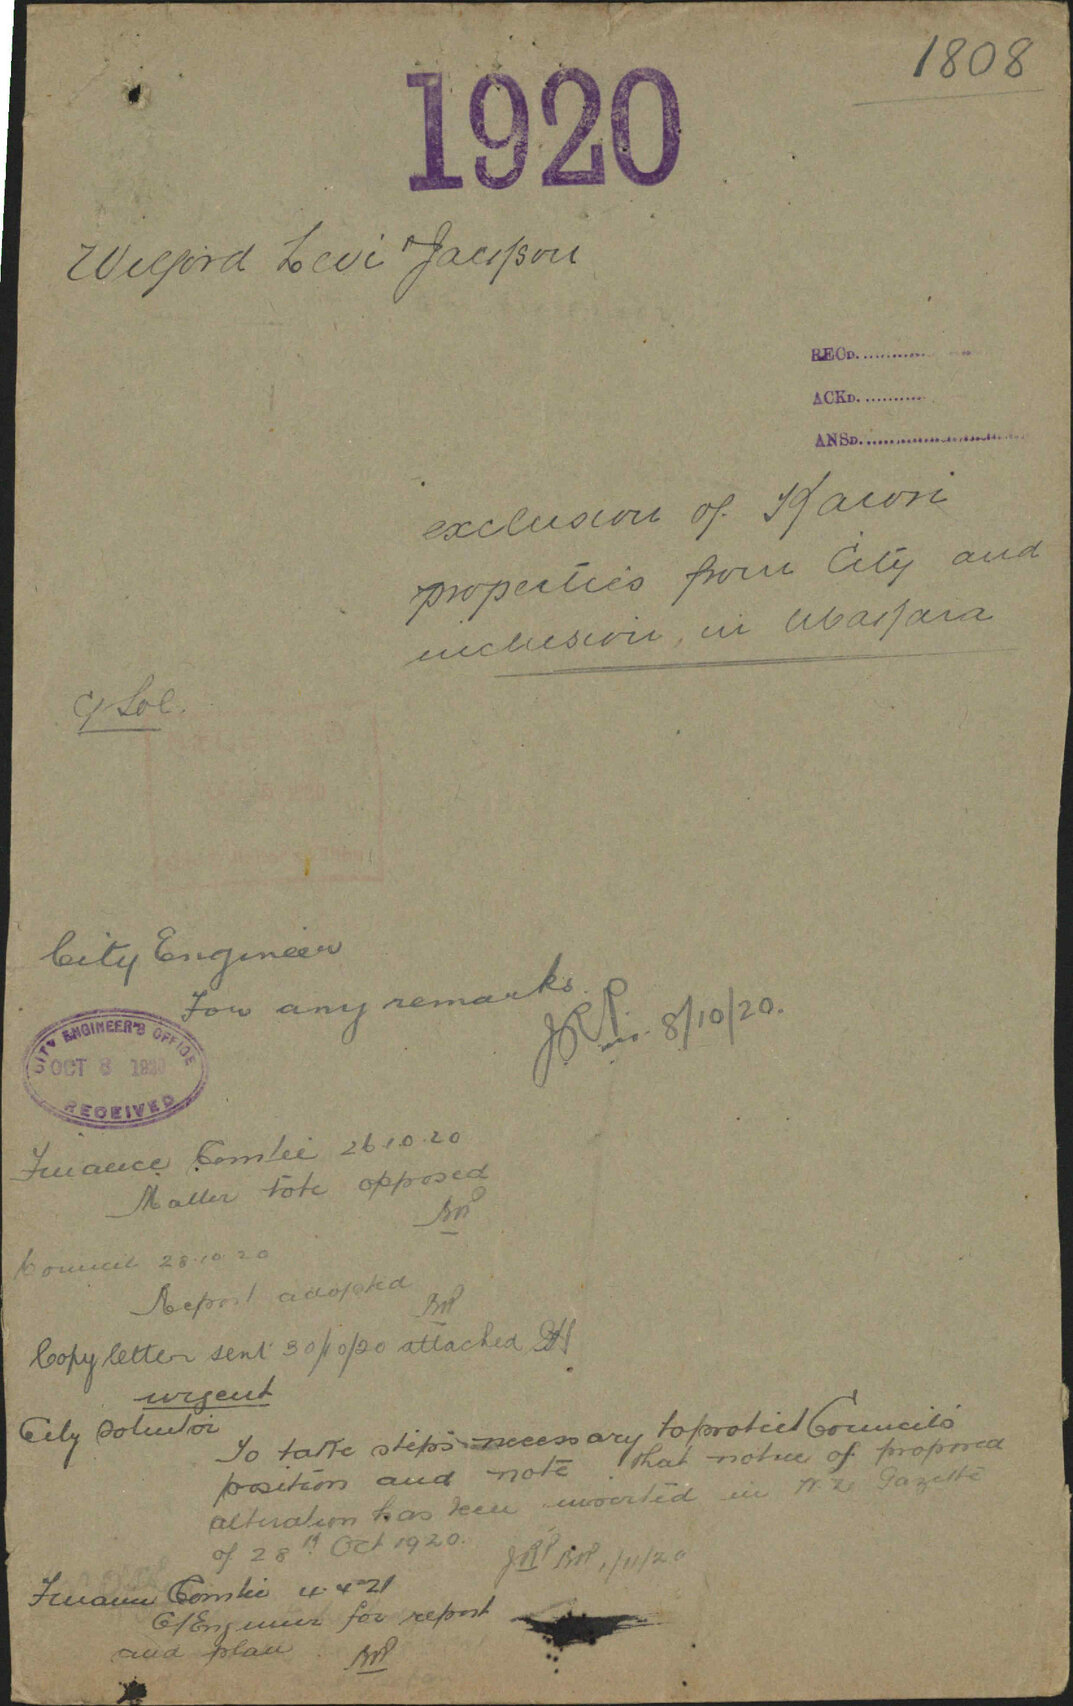 1808
1920
Welford Levi & Jackson
RECD.
ACKD.
ANSD.
exclusion of Karori
properties from City and
inclusion in Makara
C/ Sol.
City Engineer
For any remarks.
JRP 8/10/20.
CITY ENGINEER'S OFFICE
OCT 8 1920
RECEIVED
Finance Comtee 26.10.20
Matter to be opposed
Council 28.10.20
Report adopted
Copy letter sent 30/10/20 attached
urgent
City Solicitor
To take steps necessary to protect Council's
position and note that notice of proposed
alteration has been inserted in N.Z. Gazette
of 28th Oct 1920.
JRP 1/11/20
Finance Comtee 4-4-21
C/Engineer for report
and plan